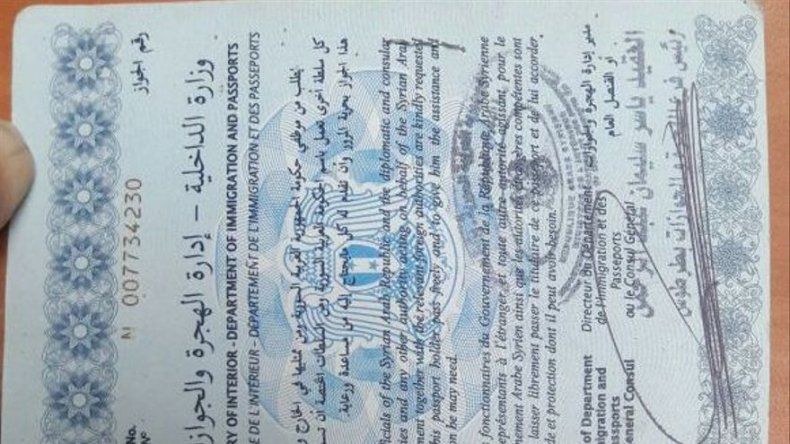 No. N 007734230 رقم الجواز
N°
وزارة الداخلية – إدارة الهجرة والجواز
RY OF INTERIOR - DEPARTMENT OF IMMIGRATION AND PASSPORTS
E DE L'INTÉRIEUR - DÉPARTEMENT DE L'IMMIGRATION ET DES PASSEPORTS
يطلب من موظفي حكومة الجمهورية العربية السورية ومن ممثليها في الخارج
كل سلطة أخرى تعمل باسم الحكومة العربية السورية ومن السلطات المختصة ان تسمح
هذا الجواز بحرية المرور وان تقدم له كل مايحتاج إليه من مساعدة ورعاية.
icials of the Syrian Arab Republic and the diplomatic and consular
tes and any other authority acting on behalf of the Syrian Arab
ment together with the relevant foreign authorities are kindly requested
this passport holder pass freely and to give him the assistance and
on he may need.
fonctionnaires du Gouvernement de la République Arabe Syrienne
eprésentants à l'étranger, et toute autre autorité agissant, pour le
nement Arabe Syrien ainsi que les autorités étrangères compétentes sont
laisser librement passer le titulaire de ce passeport et de lui accorder
de et protection dont il peut avoir besoin.
of Department Directeur du Département مدير إدارة الهجرة والجوازات
migration and de l'Immigration et des أو القنصل العام
ssports Passeports
eneral Consul ou le Consul Général
العقيد ياسر سليمان
رئيس فرع الهجرة والجوازات بطرطوس